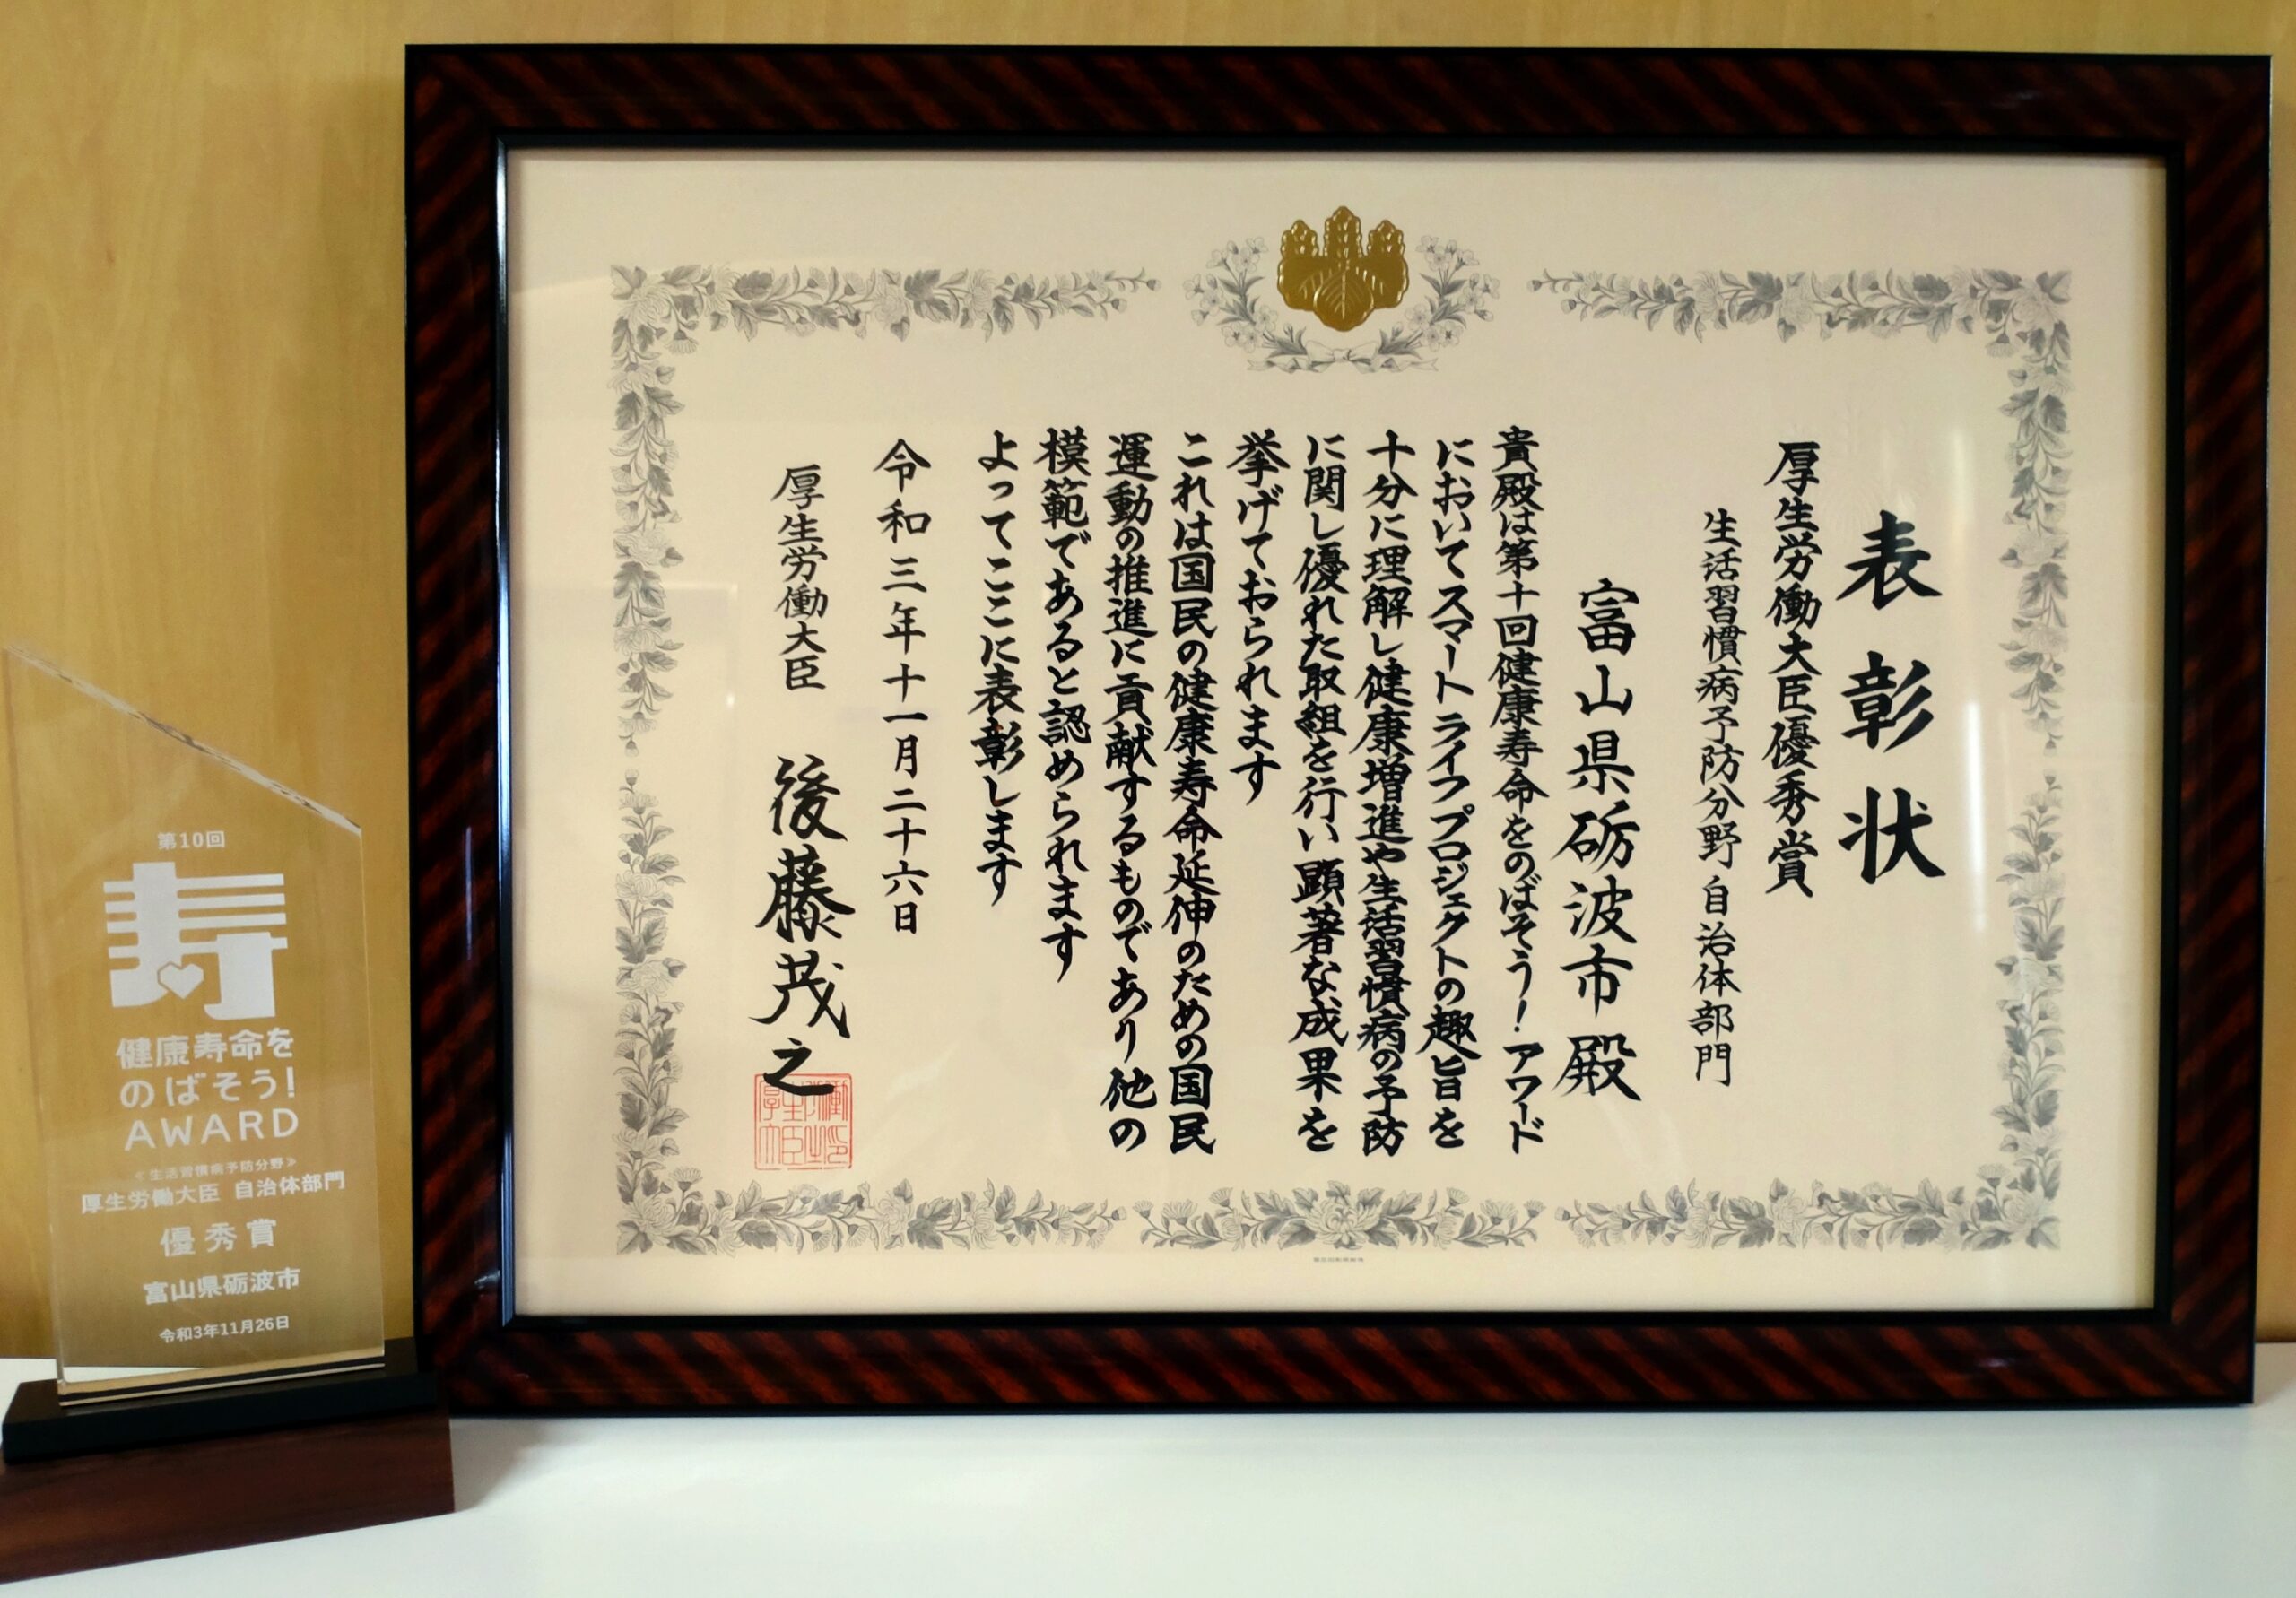 表彰状
厚生労働大臣優秀賞
生活習慣病予防分野 自治体部門
富山県砺波市殿
貴殿は第十回健康寿命をのばそう！アワード
においてスマートライフプロジェクトの趣旨を
十分に理解し健康増進や生活習慣病の予防
に関し優れた取組を行い顕著な成果を
挙げておられます
これは国民の健康寿命延伸のための国民
運動の推進に貢献するものであり他の
模範であると認められます
よってここに表彰します
令和三年十一月二十六日
厚生労働大臣 後藤茂之
第10回
寿
健康寿命を
のばそう!
AWARD
≪生活習慣病予防分野≫
厚生労働大臣 自治体部門
優秀賞
富山県砺波市
令和3年11月26日